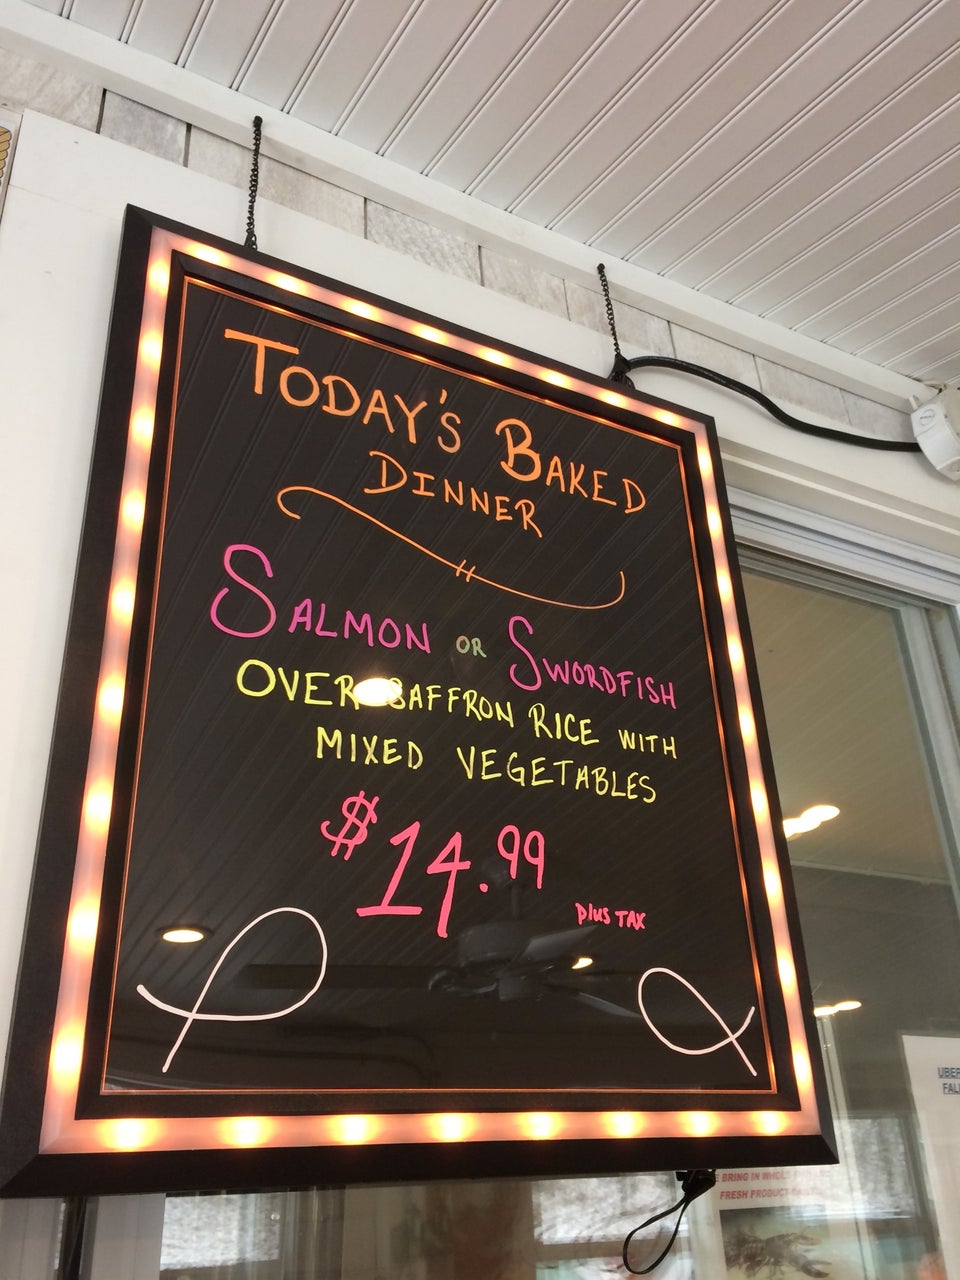 TODAY'S BAKED
DINNER
SALMON OR SWORDFISH
OVER SAFFRON RICE WITH
MIXED VEGETABLES
$14.99
plus TAX
BRING IN WHOL
FRESH PRODUCT